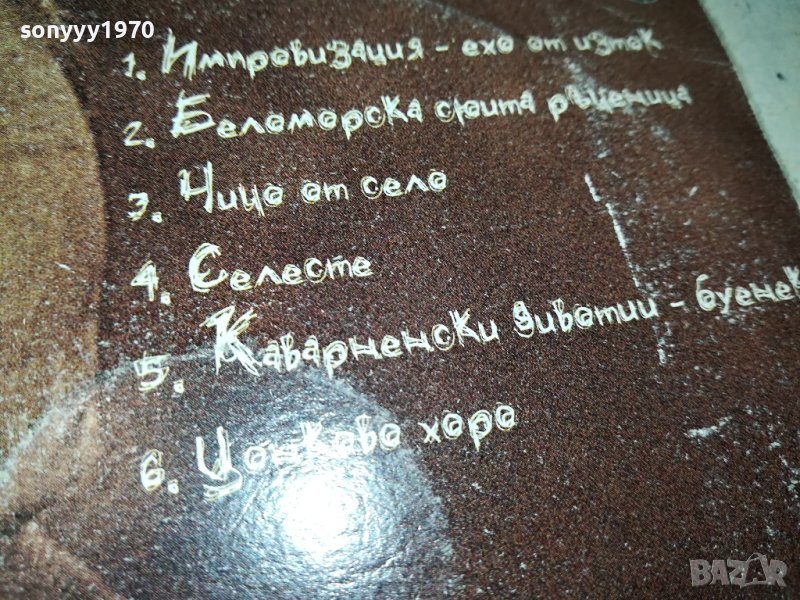 sonyyy1970
1. Импровизация - ехо от изток
2. Беломорска сюита ръченица
3. Чичо от село
4. Селесте
5. Каварненски дивотии - буенек
6. Цонково хоро
BAZAR